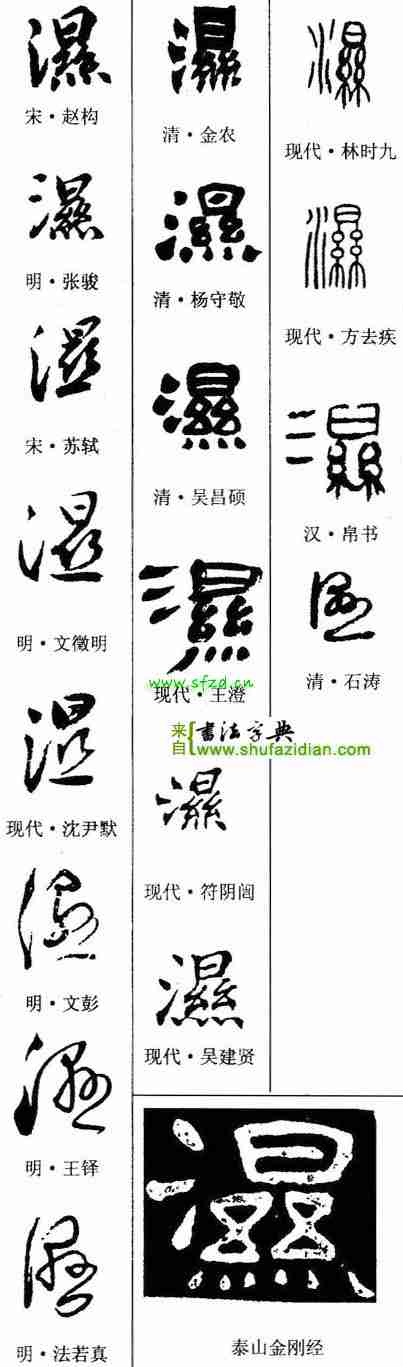 濕
宋·赵构
濕
明·张骏
湿
宋·苏轼
湿
明·文徵明
湿
现代·沈尹默
湿
明·文彭
濕
明·王铎
濕
明·法若真
濕
清·金农
濕
清·杨守敬
濕
清·吴昌硕
濕
www.sfzd.cn
现代·王澄
来自{书法字典
www.shufazidian.com
濕
现代·
濕
现代·吴建贤
濕
现代·林时九
濕
现代·方去疾
濕
汉·帛书
湿
清·石涛
濕
泰山金刚经